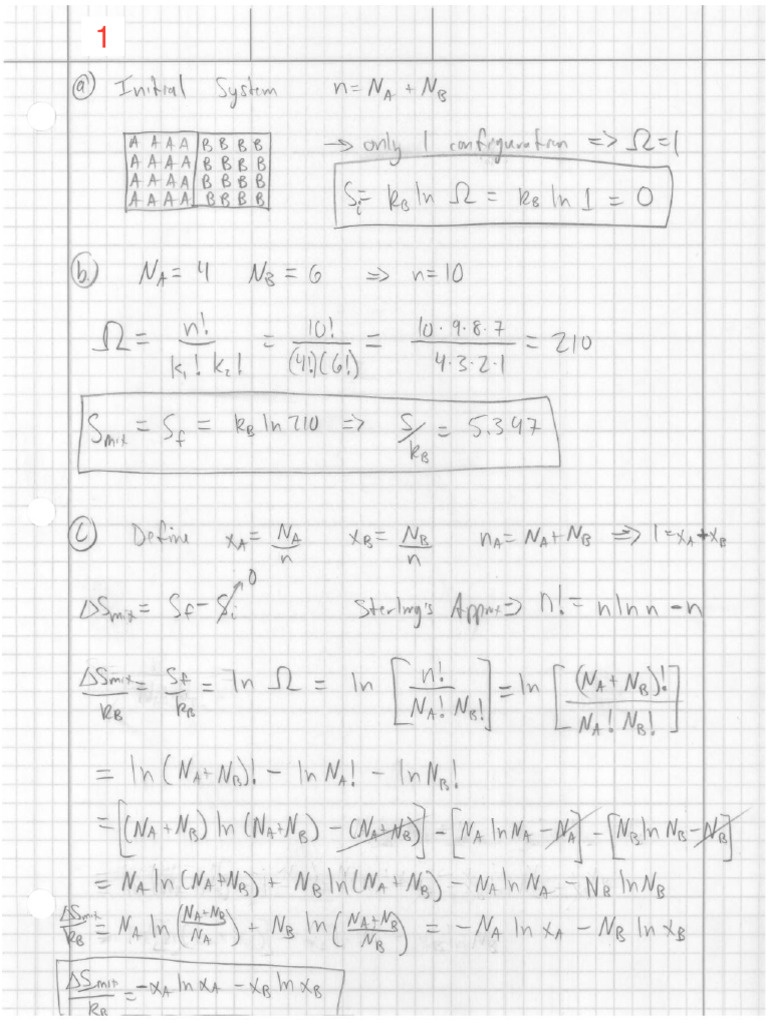 1
(a) Initial System n = N_A + N_B
A A A A B B B B → only 1 configuration => Ω = 1
A A A A B B B B
A A A A B B B B S_i = k_B ln Ω = k_B ln 1 = 0
A A A A B B B B
(b) N_A = 4 N_B = 6 => n = 10
Ω = n! / (k_1! k_2!) = 10! / ((4!)(6!)) = (10·9·8·7) / (4·3·2·1) = 210
S_mix = S_f = k_B ln 210 => S/k_B = 5.347
(c) Define x_A = N_A/n x_B = N_B/n n_A = N_A + N_B => 1 = x_A + x_B
ΔS_mix = S_f - S_i → 0 Sterling's Approx => n! = n ln n - n
ΔS_mix/k_B = S_f/k_B = ln Ω = ln [n! / (N_A! N_B!)] = ln [(N_A + N_B)! / (N_A! N_B!)]
= ln (N_A + N_B)! - ln N_A! - ln N_B!
= [(N_A + N_B) ln (N_A + N_B) - (N_A + N_B)] - [N_A ln N_A - N_A] - [N_B ln N_B - N_B]
= N_A ln (N_A + N_B) + N_B ln (N_A + N_B) - N_A ln N_A - N_B ln N_B
ΔS_mix/k_B = N_A ln ((N_A + N_B)/N_A) + N_B ln ((N_A + N_B)/N_B) = -N_A ln x_A - N_B ln x_B
ΔS_mix/k_B = -x_A ln x_A - x_B ln x_B